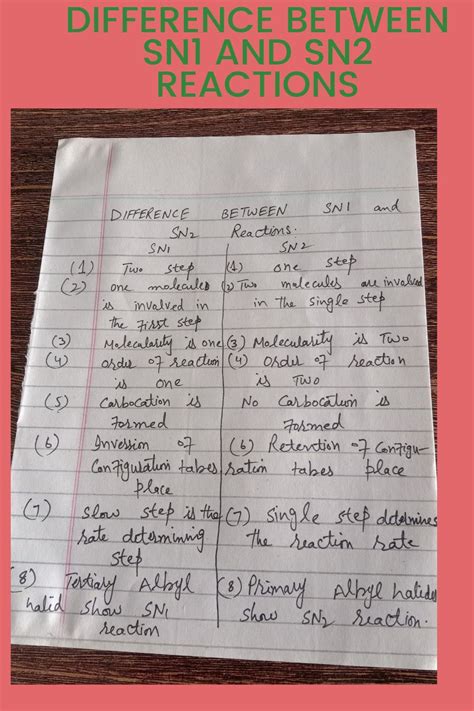 DIFFERENCE BETWEEN
SN1 AND SN2
REACTIONS
DIFFERENCE BETWEEN SN1 and
SN2 Reactions.
SN1
(1) Two step
(2) one molecules
is involved in
the First step
(3) Molecularity is one
(4) order of reaction
is one
(5) Carbocation is
Formed
(6) Inversion of
Configuration takes
place
(7) slow step is the
rate determining
step
(8) Tertiary Alkyl
halid show SN1
reaction
SN2
(1) one step
(2) Two molecules are involved
in the single step
(3) Molecularity is Two
(4) Order of reaction
is Two
No Carbocation is
Formed
(6) Retention of Configu-
ration takes place
(7) Single step determines
the reaction rate
(8) Primary Alkyl halides
show SN2 reaction.